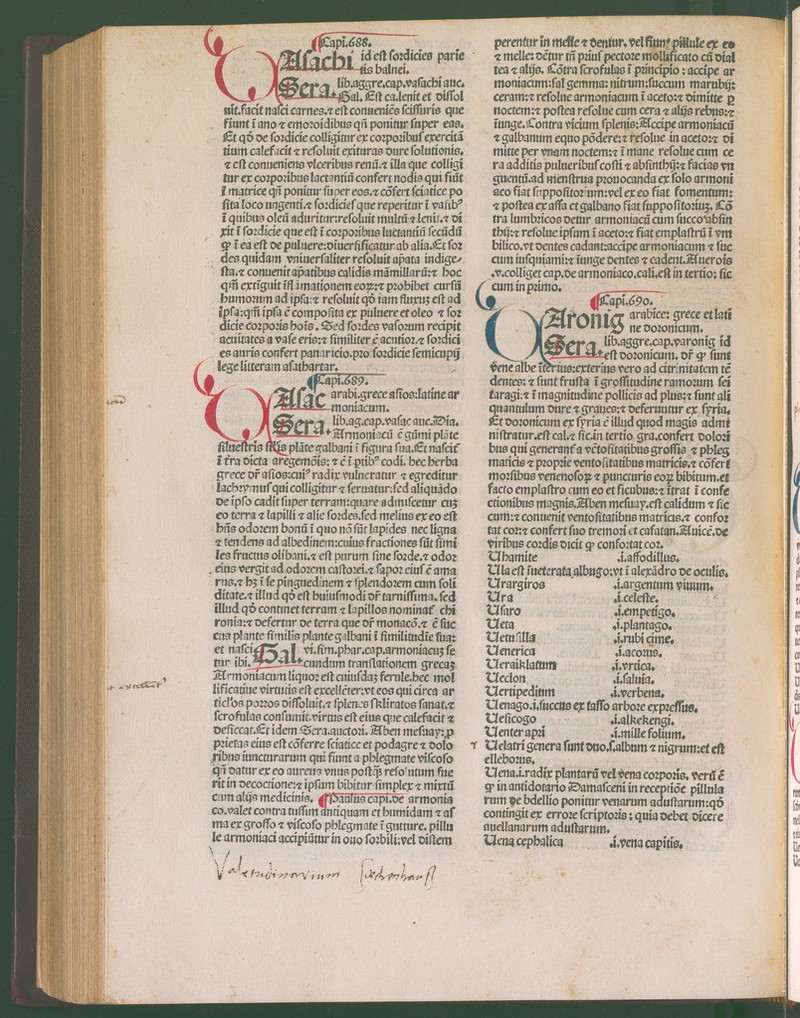 Capi.688.
Vasachi id est sordicies parie
tis balnei.
Sera. lib.aggre.cap.vasachi auc.
Gal. Est ca.lenit et dissol
uit.facit nasci carnes.⁊ est conueniēs scissuris que
fiunt ī ano ⁊ emoroidibus qñ ponitur super eas.
Et qđ de sordicie colligitur ex corporibus exercitā
tium calefacit ⁊ resoluit exituras dure solutionis.
⁊ est conueniens vlceribus renū.⁊ illa que colligi
tur ex corporibus lactantiū confert nodis qui fiūt
ī matrice qñ ponitur super eos.⁊ cōfert sciatice po
sita loco ungenti.⁊ sordicies que reperitur ī vasib⁹
ī quibus oleū aduritur:resoluit multū ⁊ lenit.⁊ di
xit ī sordicie que est ī corporibus luctantiū secūdū
ꝙ ī ea est de puluere:diuersificatur ab alia.Et sor
des quidam vniuersaliter resoluit apata indige⸗
sta.⁊ conuenit apatibus calidis māmillarū:⁊ hoc
qm̄ extiguit īflāmationem eoꝝ:⁊ prohibet cursū
humorum ad ipsa:⁊ resoluit qđ iam fluxus est ad
ipsa:qm̄ ipsa ē composita ex puluere et oleo ⁊ sor
dicie corporis hois. Sed sordes vasorum recipit
acuitates a vase eris:⁊ similiter ē acutior.⁊ sordici
es auris confert panaricio.pro sordicie semicupij
lege litteram asathartar.
Capi.689.
Vasac arabi.grece asios:latine ar
moniacum.
Sera. lib.ag.cap.vasac auc.Dia.
Armoniacū ē gūmi plāte
siluestris silis plāte galbani ī figura sua.Et nascit
ī tra dicta aregemōis:⁊ ē ī ptib⁹ codi. hec herba
grece dr asios:cui⁹ radix vulneratur ⁊ egreditur
lachrymus qui colligitur ⁊ seruatur:sed aliquādo
de ipso cadit super terram:quare admiscetur cuz
eo terra ⁊ lapilli ⁊ alie sordes.sed melius ex eo est
hñs odorem bonū ī quo nō sūt lapides nec ligna
⁊ tendens ad albedinem:cuius fractiones sūt simi
les fructus olibani.⁊ est purum sine sorde.⁊ odor
eius vergit ad odorem castorei.⁊ sapor eius ē ama
rus.⁊ hꝫ ī se pinguedinem ⁊ splendorem cum soli
ditate.⁊ illud qđ est huiusmodi dr tarnissima. sed
illud qđ continet terram ⁊ lapillos nominat chi
ronia:⁊ defertur de terra que dr monacō.⁊ ē suc
cus plante similis plante galbani ī similitudīe sua:
et nasci
tur ibi. Gal. vi.sim.phar.cap.armoniacus se
cundum translationem grecaz
Armoniacum liquor est cuiusdaz ferule.hec mol
lificatiue virtutis est excellēter:vt eos qui circa ar
ticlos porros dissoluit.⁊ splenes skliratos sanat.⁊
scrofulas consumit.virtus est eius que calefacit ⁊
desiccat.Et idem Sera.auctori. Aben mesuay:ꝓ
prietas eius est cōferre sciatice et podagre ⁊ dolo
ribus iuncturarum qui fiunt a phlegmate viscoso
qñ datur ex eo aureus vnus postꝗ̈ resolutum fue
rit in decoctione:⁊ ipsum bibitur simplex ⁊ mixtū
cum alijs medicinis. Paulus capi.de armonia
co.valet contra tussim antiquam et humidam ⁊ as
ma ex grosso ⁊ viscoso phlegmate ī gutture. pillu
le armoniaci accipiūtur in ouo sorbili:vel distem
Valetudinarium Siechenhauß
perentur in melle ⁊ dentur. vel fiunt pillule ex eo
⁊ melle: dētur tñ prius pectore mollificato cū dial
tea ⁊ alijs. Cōtra scrofulas ī principio: accipe ar
moniacum:sal gemma: nitrum:succum marubij:
ceram:⁊ resolue armoniacum ī aceto:⁊ dimitte p
noctem:⁊ postea resolue cum cera ⁊ alijs rebus:⁊
īunge.Contra vicium splenis:Accipe armoniacū
⁊ galbanum equo pōdere:⁊ resolue in aceto:⁊ di
mitte per vnam noctem:⁊ ī mane resolue cum ce
ra additis pulueribus costi ⁊ absinthij:⁊ facias vn
guentū.ad menstrua prouocanda ex solo armoni
aco fiat suppositorium:vel ex eo fiat fomentum:
⁊ postea ex assa et galbano fiat suppositoriuz. Cō
tra lumbricos detur armoniacū cum succo absin
thij:⁊ resolue ipsum ī aceto:⁊ fiat emplastrū ī vm
bilico.vt dentes cadant:accipe armoniacum ⁊ suc
cum iusquiami:⁊ īunge dentes ⁊ cadent.Auerois
.v.colliget cap.de armoniaco.cali.est in tertio: sic
cum in primo.
Capi.690.
Varonig arabice: grece et lati
ne doronicum.
Sera. lib.aggre.cap.varonig id
est doronicum. dr ꝙ sunt
vene albe īterius:exterius vero ad citrinitatem tē
dentes: ⁊ sunt frusta ī grossitudine ramorum sci
taragi:⁊ ī magnitudine pollicis ad plus:⁊ sunt ali
quantulum dure ⁊ graues:⁊ deferuntur ex syria.
Et doronicum ex syria ē illud quod magis admi
nistratur.est cal.⁊ sic.in tertio gra.confert dolori
bus qui generant a vētositatibus grossis ⁊ phleg
maticis ⁊ proprie ventositatibus matricis.⁊ cōfert
morsibus venenosoꝝ ⁊ puncturis eoꝝ bibitum.et
facto emplastro cum eo et ficubus:⁊ ītrat ī confe
ctionibus magnis.Aben mesuay.est calidum ⁊ sic
cum:⁊ conuenit ventositatibus matricis.⁊ confor
tat cor:⁊ confert suo tremori et cafatan.Auicē.de
viribus cordis dicit ꝙ confortat cor.
Uhamite .i.affodillus.
Ula est īueterata albugo:vt ī alexādro de oculis.
Urargiros .i.argentum viuum.
Ura .i.celeste.
Usaro .i.empetigo.
Ueta .i.plantago.
Uetusilla .i.rubi cime.
Uenerica .i.acorus.
Ueraiklatum .i.vrtica.
Ueclon .i.saluia.
Uertipedium .i.verbena.
Uenago.i.succus ex taffo arbore expressus.
Uesicogo .i.alkekengi.
Uenter apri .i.mille folium.
Uelatri genera sunt duo.s.album ⁊ nigrum:et est
elleborus.
Uena.i.radix plantarū vel vena corporis. verū ē
ꝙ in antidotario Damasceni in receptiōe pillula
rum de bdellio ponitur venarum adustarum:qđ
contingit ex errore scriptoris: quia debet dicere
auellanarum adustarum.
Uena cephalica .i.vena capitis.